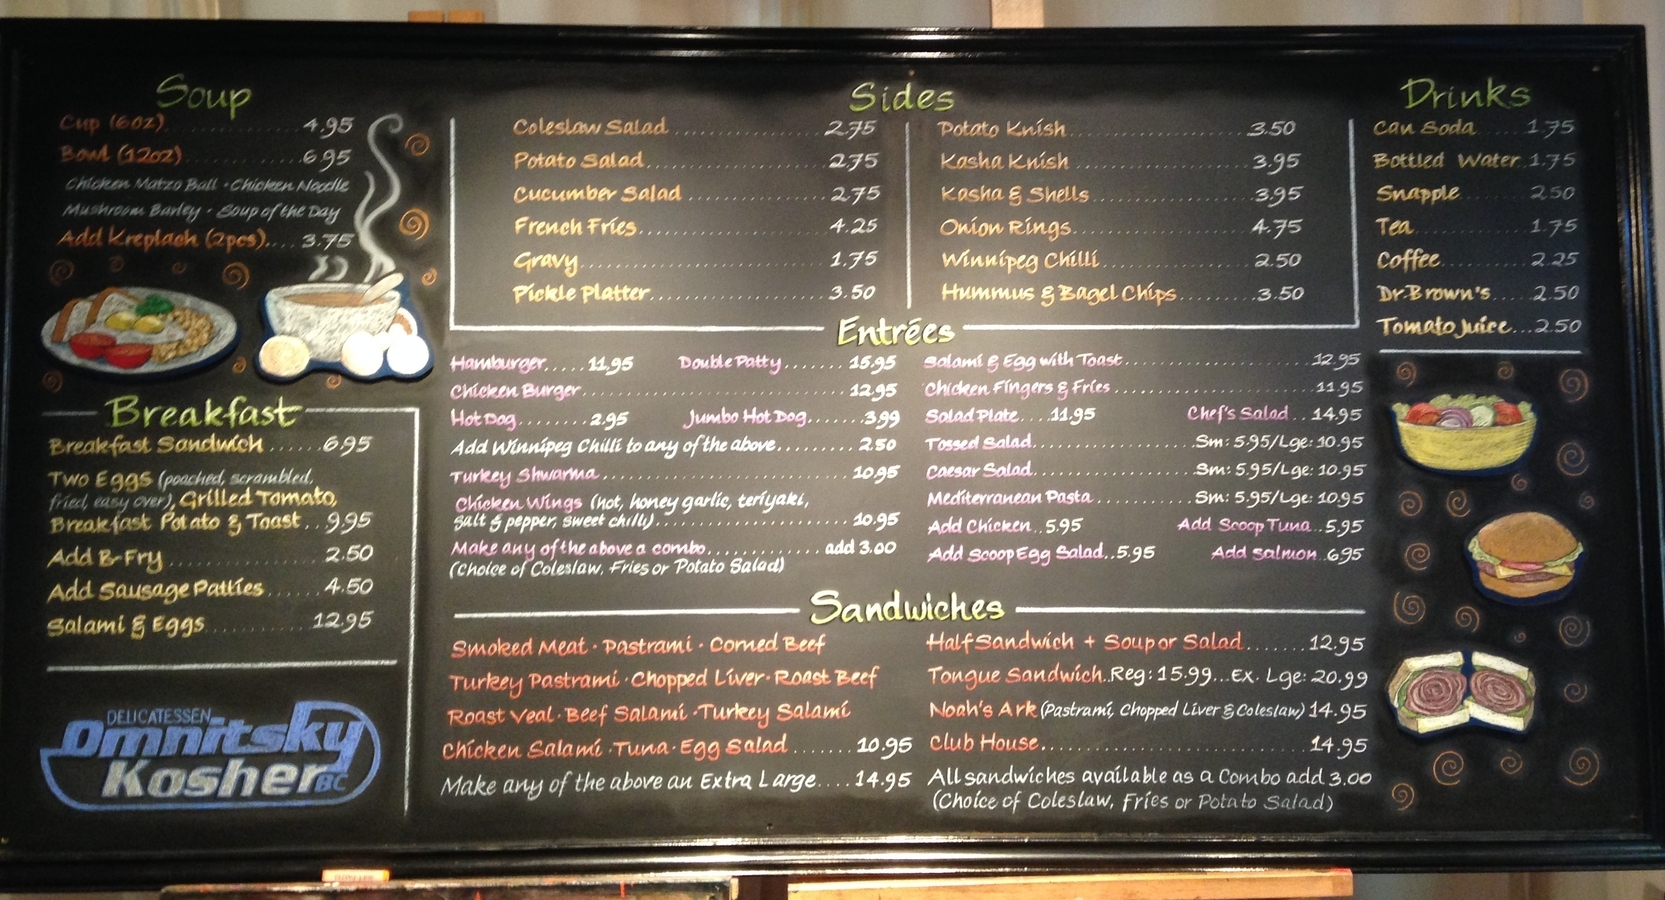 Soup
Cup (6oz)..............4.95
Bowl (12oz)..............6.95
Chicken Matzo Ball · Chicken Noodle
Mushroom Barley · Soup of the Day
Add Kreplach (2pcs)....3.75
Breakfast
Breakfast Sandwich......6.95
Two Eggs (poached, scrambled,
fried, easy over), Grilled Tomato,
Breakfast Potato & Toast..9.95
Add B-Fry..............2.50
Add Sausage Patties......4.50
Salami & Eggs............12.95
DELICATESSEN
Omnitsky
Kosher BC
Sides
Coleslaw Salad..............2.75
Potato Salad..............2.75
Cucumber Salad..............2.75
French Fries..............4.25
Gravy..............1.75
Pickle Platter..............3.50
Potato Knish..............3.50
Kasha Knish..............3.95
Kasha & Shells..............3.95
Onion Rings..............4.75
Winnipeg Chilli..............2.50
Hummus & Bagel Chips.........3.50
Entrées
Hamburger.....11.95 Double Patty.......15.95
Chicken Burger..............12.95
Hot Dog........2.95 Jumbo Hot Dog.......3.99
Add Winnipeg Chilli to any of the above.........2.50
Turkey Shwarma..............10.95
Chicken Wings (hot, honey garlic, teriyaki,
salt & pepper, sweet chilli)..............10.95
Make any of the above a combo............add 3.00
(Choice of Coleslaw, Fries or Potato Salad)
Salami & Egg with Toast..............12.95
Chicken Fingers & Fries..............11.95
Salad Plate....11.95 Chef's Salad...14.95
Tossed Salad..............Sm: 5.95/Lge: 10.95
Caesar Salad..............Sm: 5.95/Lge: 10.95
Mediterranean Pasta............Sm: 5.95/Lge: 10.95
Add Chicken..5.95 Add Scoop Tuna..5.95
Add Scoop Egg Salad..5.95 Add Salmon..6.95
Sandwiches
Smoked Meat · Pastrami · Corned Beef
Turkey Pastrami · Chopped Liver · Roast Beef
Roast Veal · Beef Salami · Turkey Salami
Chicken Salami · Tuna · Egg Salad.......10.95
Make any of the above an Extra Large....14.95
Half Sandwich + Soup or Salad.......12.95
Tongue Sandwich..Reg: 15.99...Ex. Lge: 20.99
Noah's Ark (Pastrami, Chopped Liver & Coleslaw) 14.95
Club House..............14.95
All sandwiches available as a Combo add 3.00
(Choice of Coleslaw, Fries or Potato Salad)
Drinks
Can Soda.....1.75
Bottled Water.1.75
Snapple........2.50
Tea..............1.75
Coffee..........2.25
Dr. Brown's.....2.50
Tomato Juice...2.50